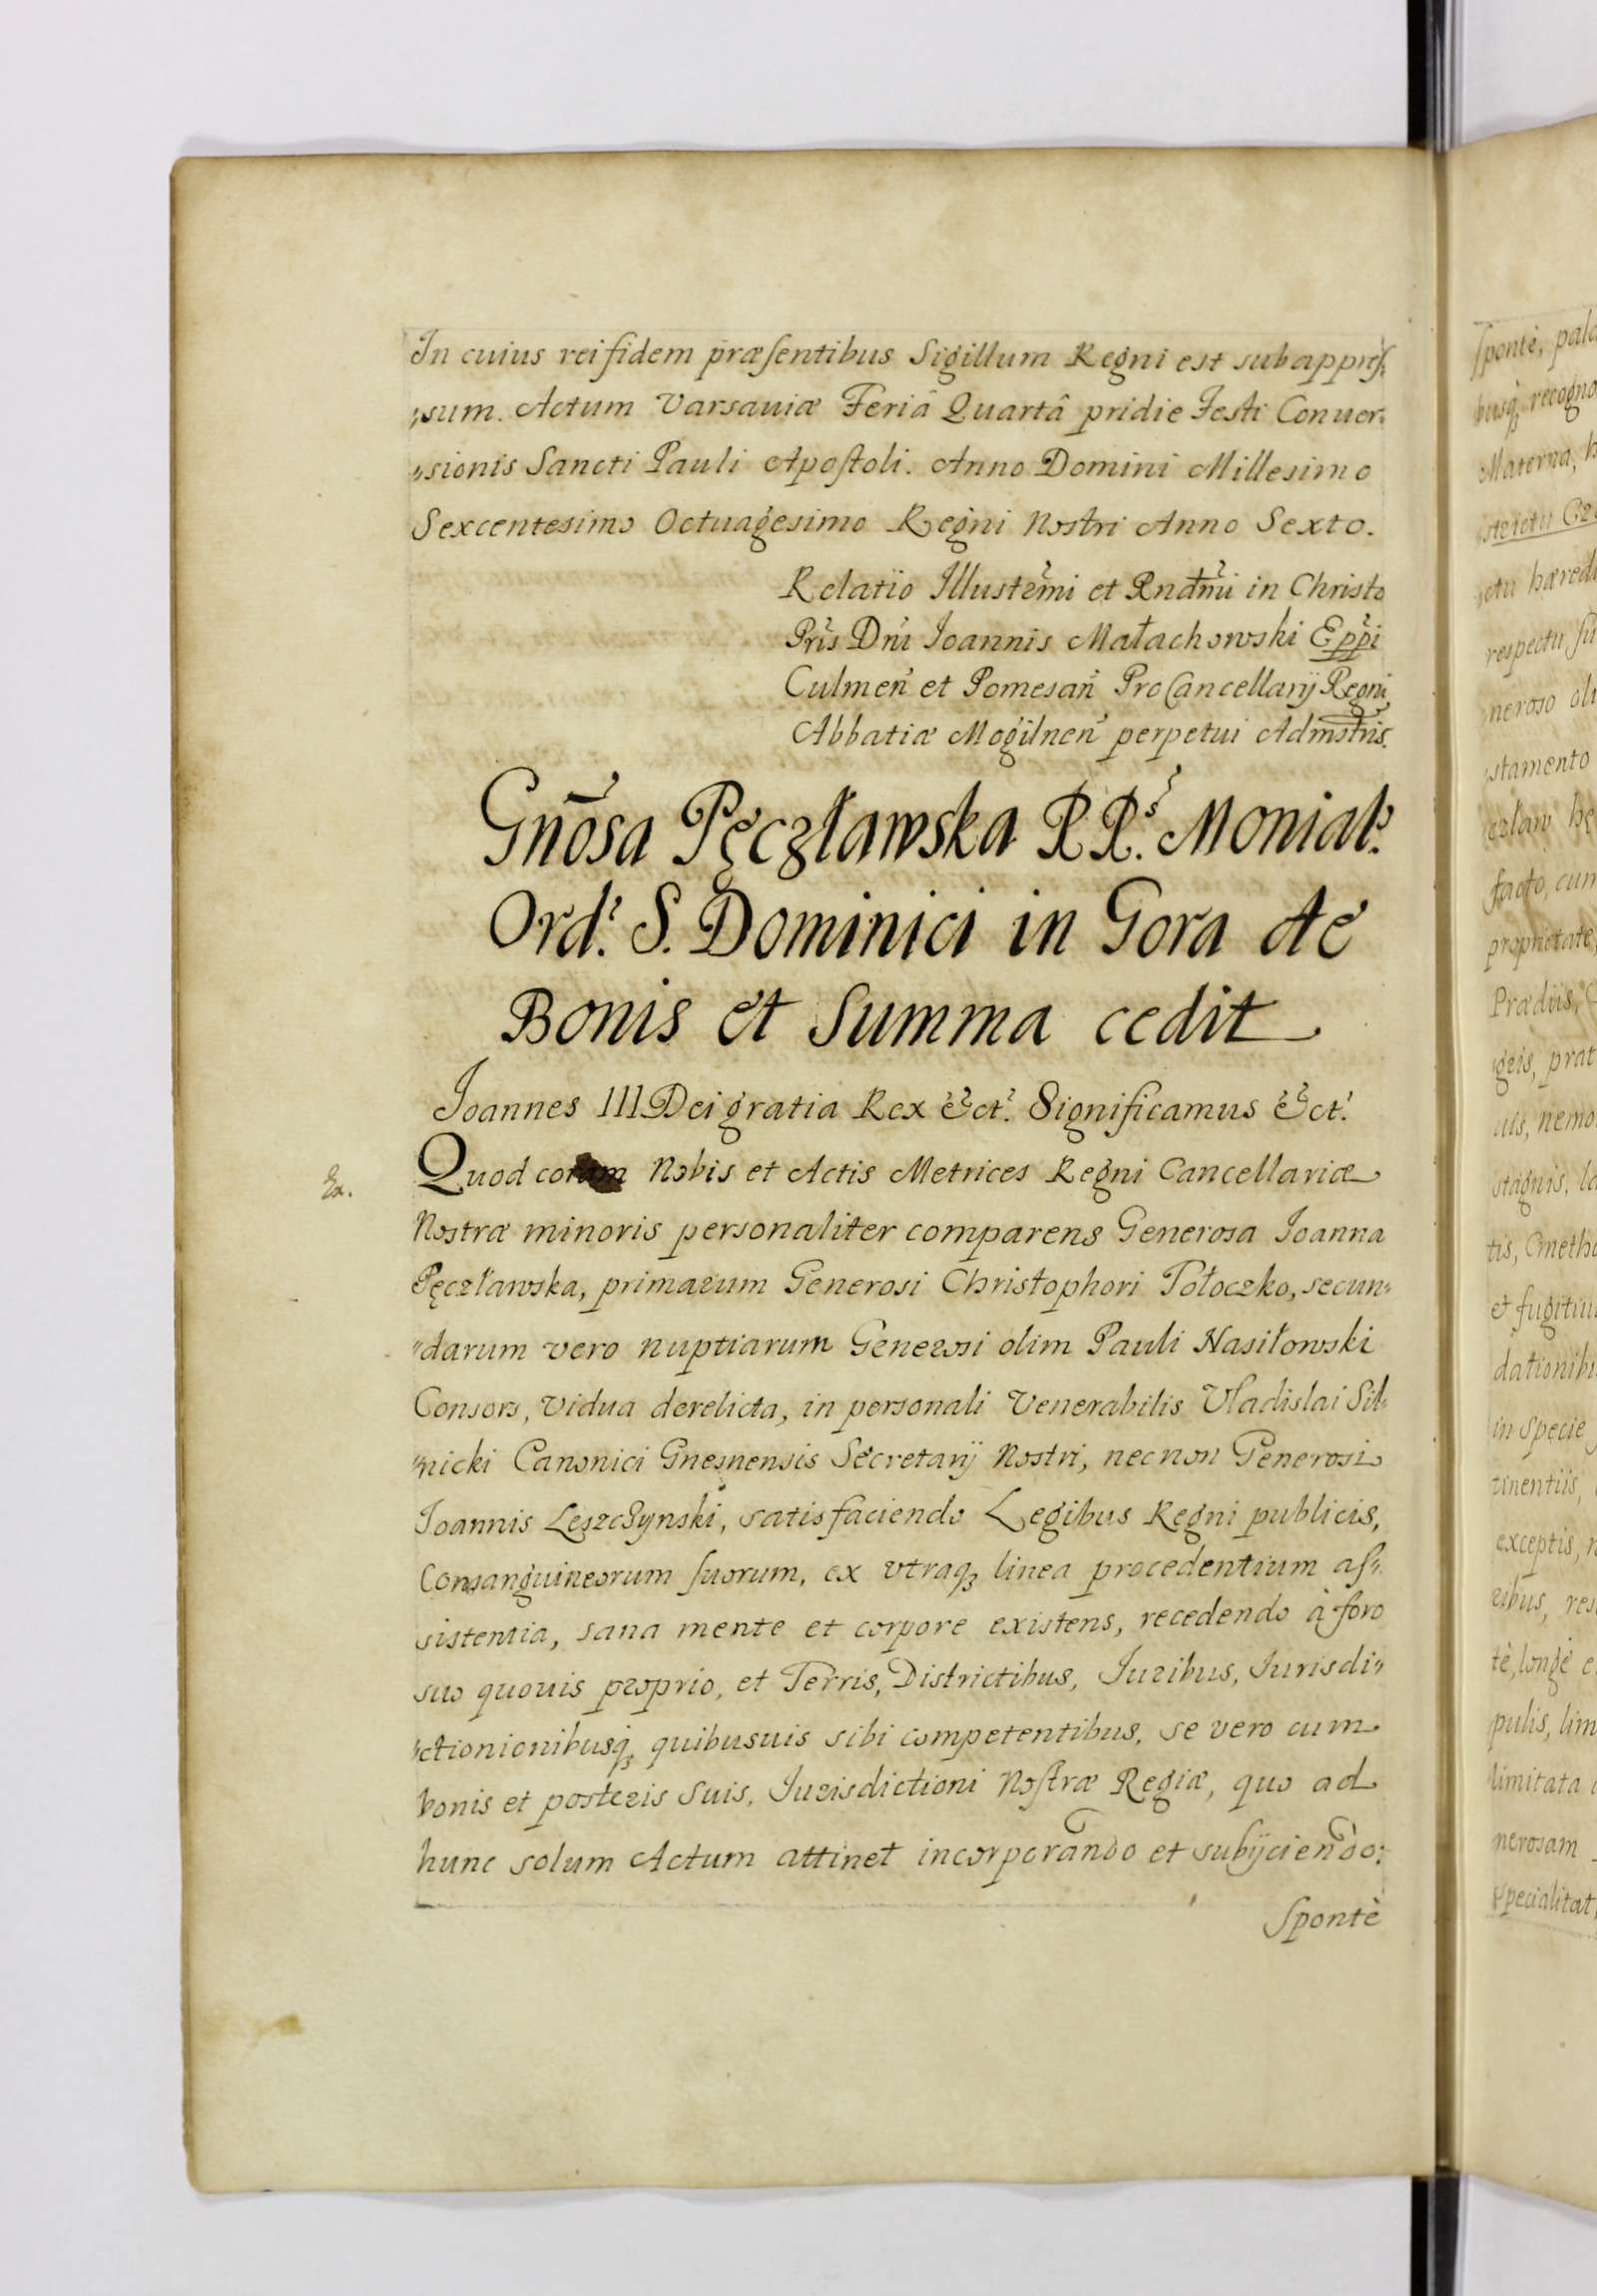 In cuius rei fidem præsentibus Sigillum Regni est subappres:
„sum. Actum Varsaviæ Feriâ Quartâ pridie Festi Conver:
„sionis Sancti Pauli Apostoli. Anno Domini Millesimo
Sexcentesimo Octuagesimo Regni Nostri Anno Sexto.
Relatio Illustrmi et Rndmi in Christo
Pris Dni Joannis Małachowski Eppi
Culmen et Pomesan ProCancellarij Regni
Abbatiæ Mogilnen perpetui Admstris.
Gnosa Pęczławska R R.s Monial:
Ord: S. Dominici in Gora de
Bonis et Summa cedit
Joannes III Dei gratia Rex &ct. Significamus &ct.
Quod coram Nobis et Actis Metrices Regni Cancellariæ
Nostræ minoris personaliter comparens Generosa Joanna
Pęczławska, primarum Generosi Christophori Tołoczko, secun„
„darum vero nuptiarum Generosi olim Pauli Nasiłowski
Consors, vidua derelicta, in personali Venerabilis Vladislai Sil„
„nicki Canonici Gnesnensis Secretarij Nostri, necnon Generosi
Joannis Leszczynski, satisfaciendo Legibus Regni publicis,
Consanguineorum suorum, ex vtraq; linea procedentium as„
sistentia, sana mente et corpore existens, recedendo à foro
suo quouis proprio, et Terris, Districtibus, Juribus, Jurisdi„
„ctionionibusq; quibusuis sibi competentibus, se vero cum
bonis et posteris suis, Jurisdictioni Nostræ Regiæ, quo ad
hunc solum Actum attinet incorporando et subijciendo:
Spontè
sponte, pala
busq; recogno
Materna, h
respectu su
neroso oli
stamento
facto, cum
proprietate,
Prædiis,
geis, prat
uis, nemo
stagnis, la
tis, Cmetho
et fugitiui
dationibu
in specie
tinentiis,
exceptis, n
ribus, res
tè, longè e
pulis, lim
limitata
nerosam
specialitat